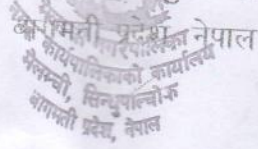 बागमती प्रदेश, नेपाल
कार्यपालिकाको कार्यालय
मैलम्ची, सिन्धुपाल्चोक
बागमती प्रदेश, नेपाल